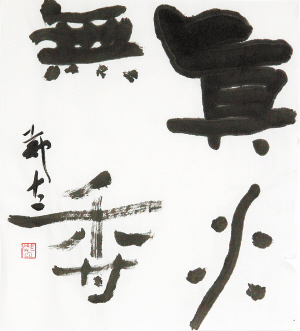 真水
無香